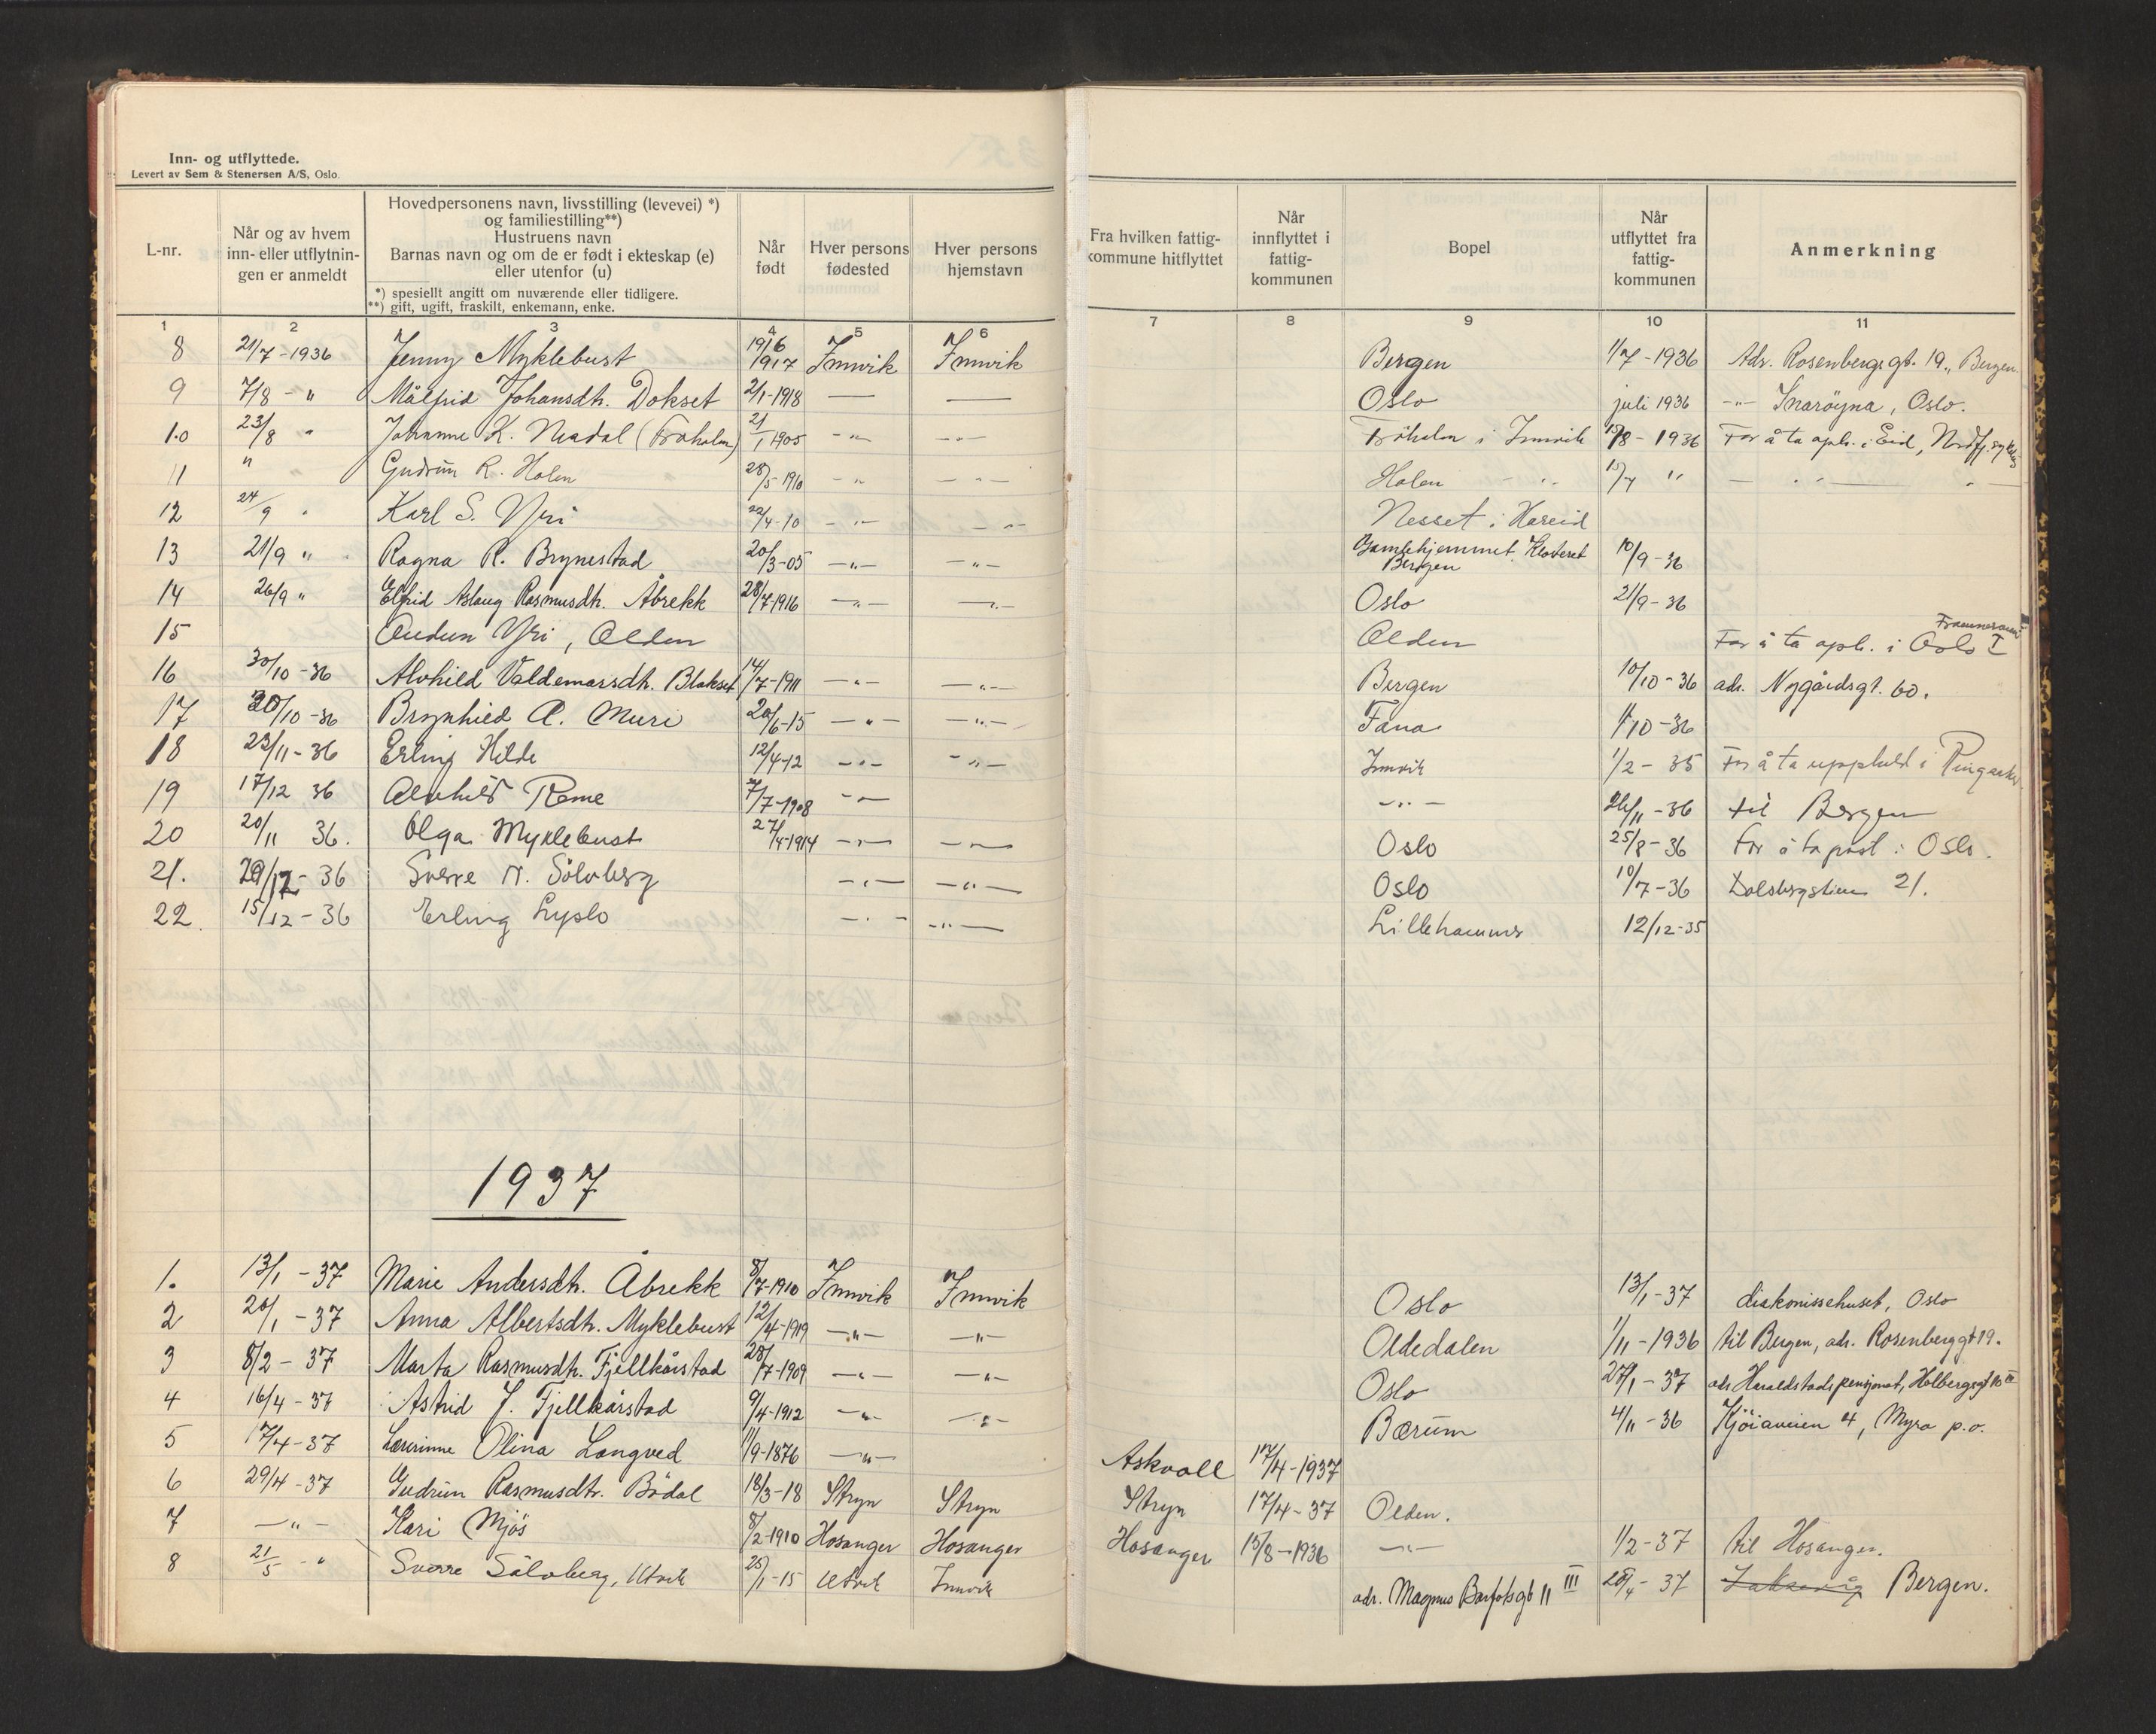 Inn- og utflyttede.
Levert av Sem & Stenersen A/S, Oslo.
L-nr.
Når og av hvem
inn- eller utflytnin-
gen er anmeldt
Hovedpersonens navn, livsstilling (levevei) *)
og familiestilling**)
Hustruens navn
Barnas navn og om de er født i ekteskap (e)
eller utenfor (u)
*) spesiellt angitt om nuværende eller tidligere.
**) gift, ugift, fraskilt, enkemann, enke.
Når
født
Hver persons
fødested
Hver persons
hjemstavn
Fra hvilken fattig-
kommune hitflyttet
Når
innflyttet i
fattig-
kommunen
Bopel
Når
utflyttet fra
fattig-
kommunen
Anmerkning
1 2 3 4 5 6 7 8 9 10 11
8 21/7-1936 Jenny Myklebust 19/6 1917 Innvik Innvik Bergen 1/7-1936 Adr. Rosenbergsgt. 19., Bergen.
9 7/8 - " Målfrid Johansdh. Dokset 2/1-1918 — — Oslo juli 1936 -"- Snarøyna, Oslo.
10 23/8 " Johanne K. Neadal 21/1 1905 -"- -"- i Innvik 15/8-1936 For å ta oph. i Eid,
11 " " Gudrun R. Holen 28/5-1910 -"- -"- Holen -"-
12 24/9 " Karl S. Yri 22/4-10 -"- -"- Nesset i Hareid
13 21/9 " Ragna R. Brynestad 20/3-05 -"- -"- Gamlehjemmet Klosteret Bergen 10/9-36
14 26/9 " Elfrid Aslaug Rasmusdh. Åbrekk 28/7-1916 -"- -"- Oslo 21/9-36
15 Audun Yri, Olden Olden For å ta oph. i Oslo
16 30/10-36 Alvhild Valdemarsdh. Blakset 14/7-1911 -"- -"- Bergen 10/10-36 adr. Nygårdsgt. 60.
17 30/10-36 Brynhild A. Muri 20/6-15 -"- -"- Fana 1/10-36
18 23/11-36 Erling Hilde 12/4-12 -"- -"- Innvik 1/2-35 For å ta upphold i
19 17/12 36 Alvhild Reme 7/7-1908 -"- -"- 26/11-36 til Bergen
20 20/11 36. Olga Myklebust 27/4-1914 -"- -"- Oslo 25/8-36 For å ta post i Oslo.
21. 29/12-36 Sverre N. Sölvberg -"- -"- Oslo 10/7-36 21.
22. 15/12-36 Erling Lyslo -"- -"- Lillehammer 12/12-35
1937
1. 13/1-37 Marie Andersdh. Åbrekk 8/7-1910 Innvik Innvik Oslo 13/1-37 diakonissehuset, Oslo
2 20/1-37 Anna Albertsdh. Myklebust 12/4-1919 -"- -"- Oldedalen 1/11-1936 til Bergen, adr. Rosenberggt 19.
3 8/2-37 Marta Rasmusdh. Fjellkårstad 28/7-1909 -"- -"- Oslo 27/1-37 adr. Haraldstads pensjonat, Holbergsgt 10 III
4 16/4-37 Astrid J. Fjellkårstad 9/4-1912 -"- -"- Bærum 4/11-36 4, Myra p.o.
5 17/4-37 Lærerinne Olina Langved 11/9-1876 -"- Askvoll 17/4-1937
6 29/4-37 Gudrun Rasmusdtr. Bödal 18/3-18 Stryn Stryn Stryn 17/4-37 Olden.
7 -"- Kari Mjøs 8/2-1910 Hosanger Hosanger Hosanger 15/8-1936 -"- 1/2-37 til Hosanger.
8 21/5 -" Sverre Sölvberg, Utvik 25/1-15 Utvik Innvik adr. Magnus Barfotsgt 11 III 28/4-37 Bergen.